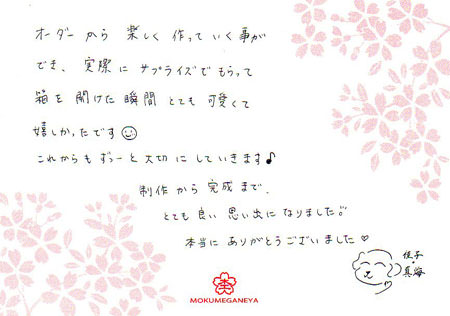 オーダーから 楽しく 作って いく事が
でき、実際に サプライズで もらって
箱を 開けた 瞬間 とても 可愛くて
嬉しかったです
これからも ずっーと大切に していきます♪
制作から 完成まで、
とても 良い 思い出に なりました!!
本当に ありがとうございました♡
佳子
真海
MOKUMEGANEYA